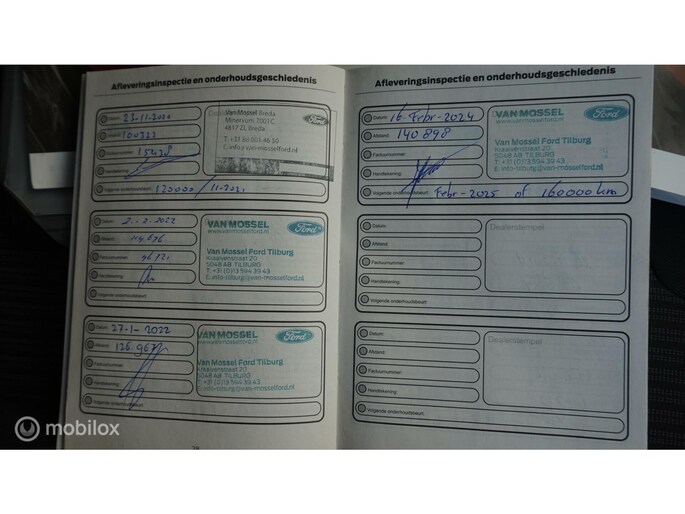 Afleveringsinspectie en onderhoudsgeschiedenis
Datum: 23-11-2020
Afstand: 100323
Factuurnummer:
Handtekening:
Volgende onderhoudsbeurt: 120000 / 11-2021
Van Mossel Breda
Minervum 7001C
4817 ZL Breda
Ford
Datum: 2-2-2022
Afstand:
Factuurnummer:
Handtekening:
Volgende onderhoudsbeurt:
VAN MOSSEL
www.vanmosselford.nl
Ford
Van Mossel Ford Tilburg
Kraaivenstraat 20
5048 AB TILBURG
T: +31 (0)13 594 39 43
E: info-tilburg@van-mosselford.nl
Datum: 27-1-2022
Afstand: 126.967
Factuurnummer:
Handtekening:
Volgende onderhoudsbeurt:
VAN MOSSEL
www.vanmosselford.nl
Ford
Van Mossel Ford Tilburg
Kraaivenstraat 20
5048 AB TILBURG
T: +31 (0)13 594 39 43
E: info-tilburg@van-mosselford.nl
Afleveringsinspectie en onderhoudsgeschiedenis
Datum: 16 Febr-2024
Afstand: 140898
Factuurnummer:
Handtekening:
Volgende onderhoudsbeurt: Febr-2025 of 160000km
VAN MOSSEL
www.vanmosselford.nl
Ford
Van Mossel Ford Tilburg
Kraaivenstraat 20
5048 AB TILBURG
T: +31 (0)13 594 39 43
E: info-tilburg@van-mosselford.nl
Datum:
Afstand:
Factuurnummer:
Handtekening:
Volgende onderhoudsbeurt:
Dealerstempel
Datum:
Afstand:
Factuurnummer:
Handtekening:
Volgende onderhoudsbeurt:
Dealerstempel
mobilox